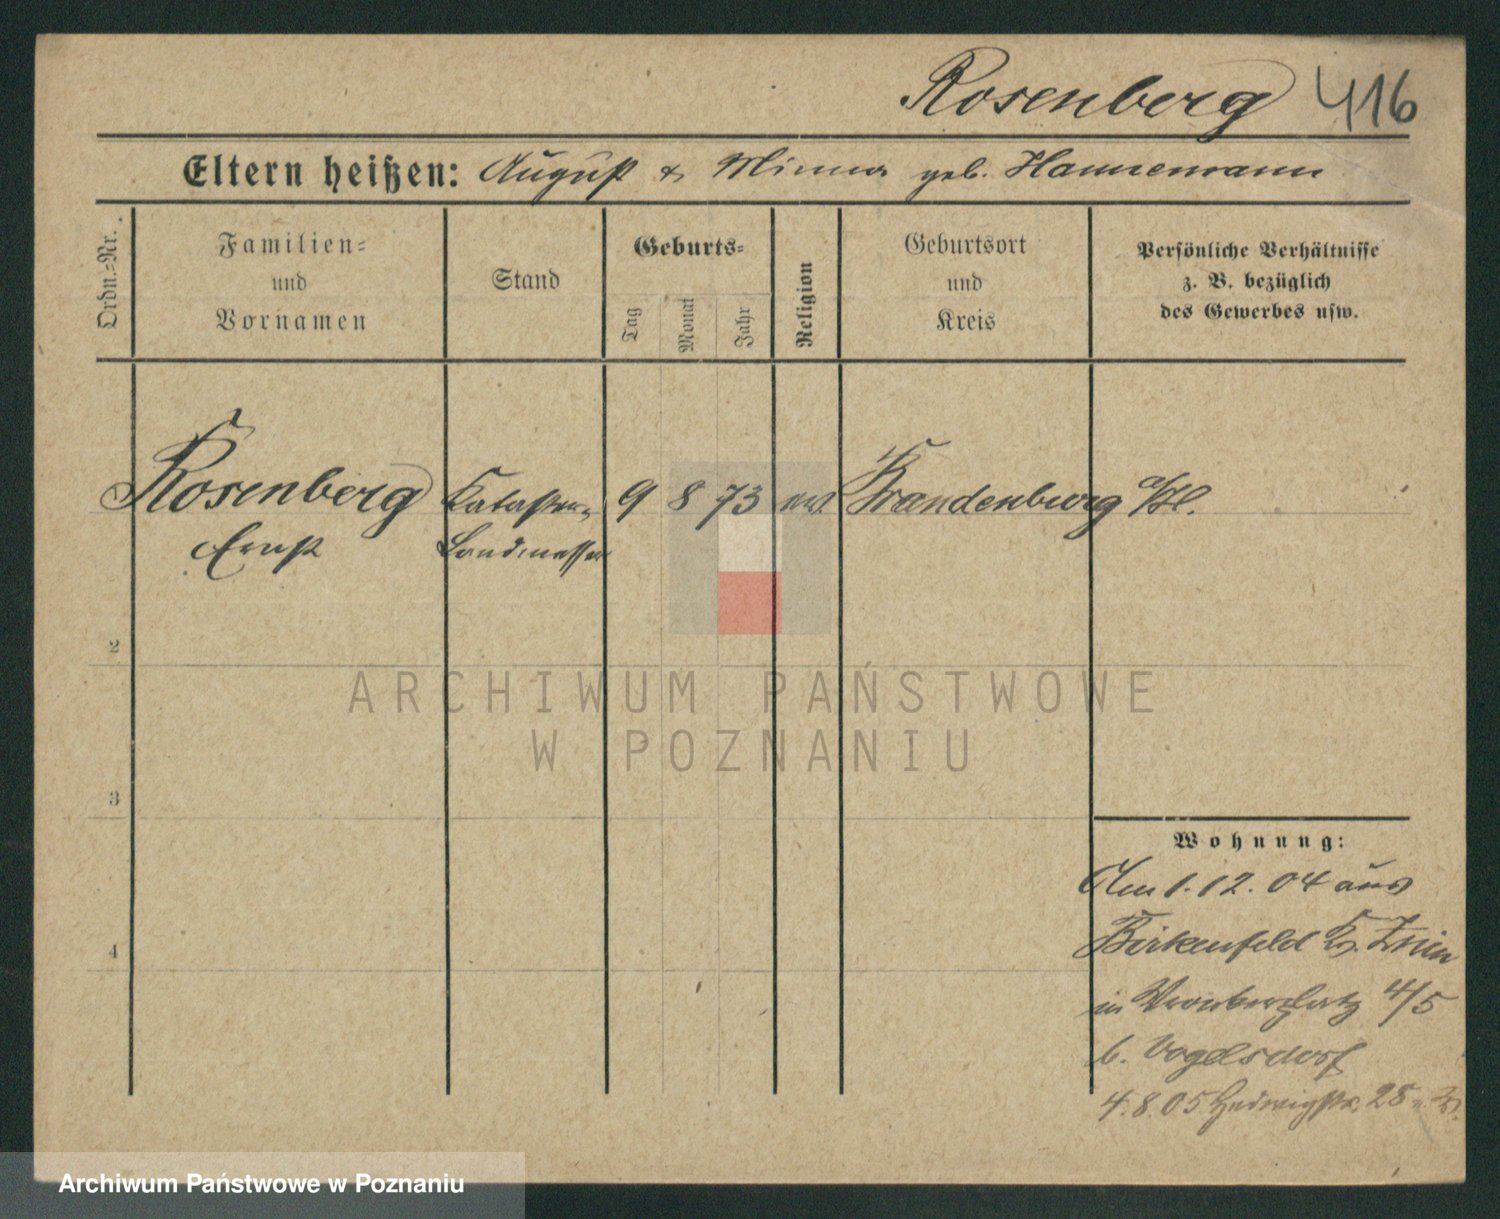 Rosenberg 416
Eltern heißen: August & Minna geb. Hannemann
Ordn.=Nr.
Familien=
und
Vornamen
Stand
Geburts=
Tag
Monat
Jahr
Religion
Geburtsort
und
Kreis
Persönliche Verhältnisse
z. B. bezüglich
des Gewerbes usw.
1 Rosenberg Kataster- 9 8 73 ev. Brandenburg a/H.
Ernst Landmesser
2
3
4
Wohnung:
Am 1.12.04 aus
Birkenfeld Kr. Znin
in Wronkerplatz 4/5
b. Vogelsdorf
4.8.05 Hedwigstr. 25
ARCHIWUM PAŃSTWOWE
W POZNANIU
Archiwum Państwowe w Poznaniu